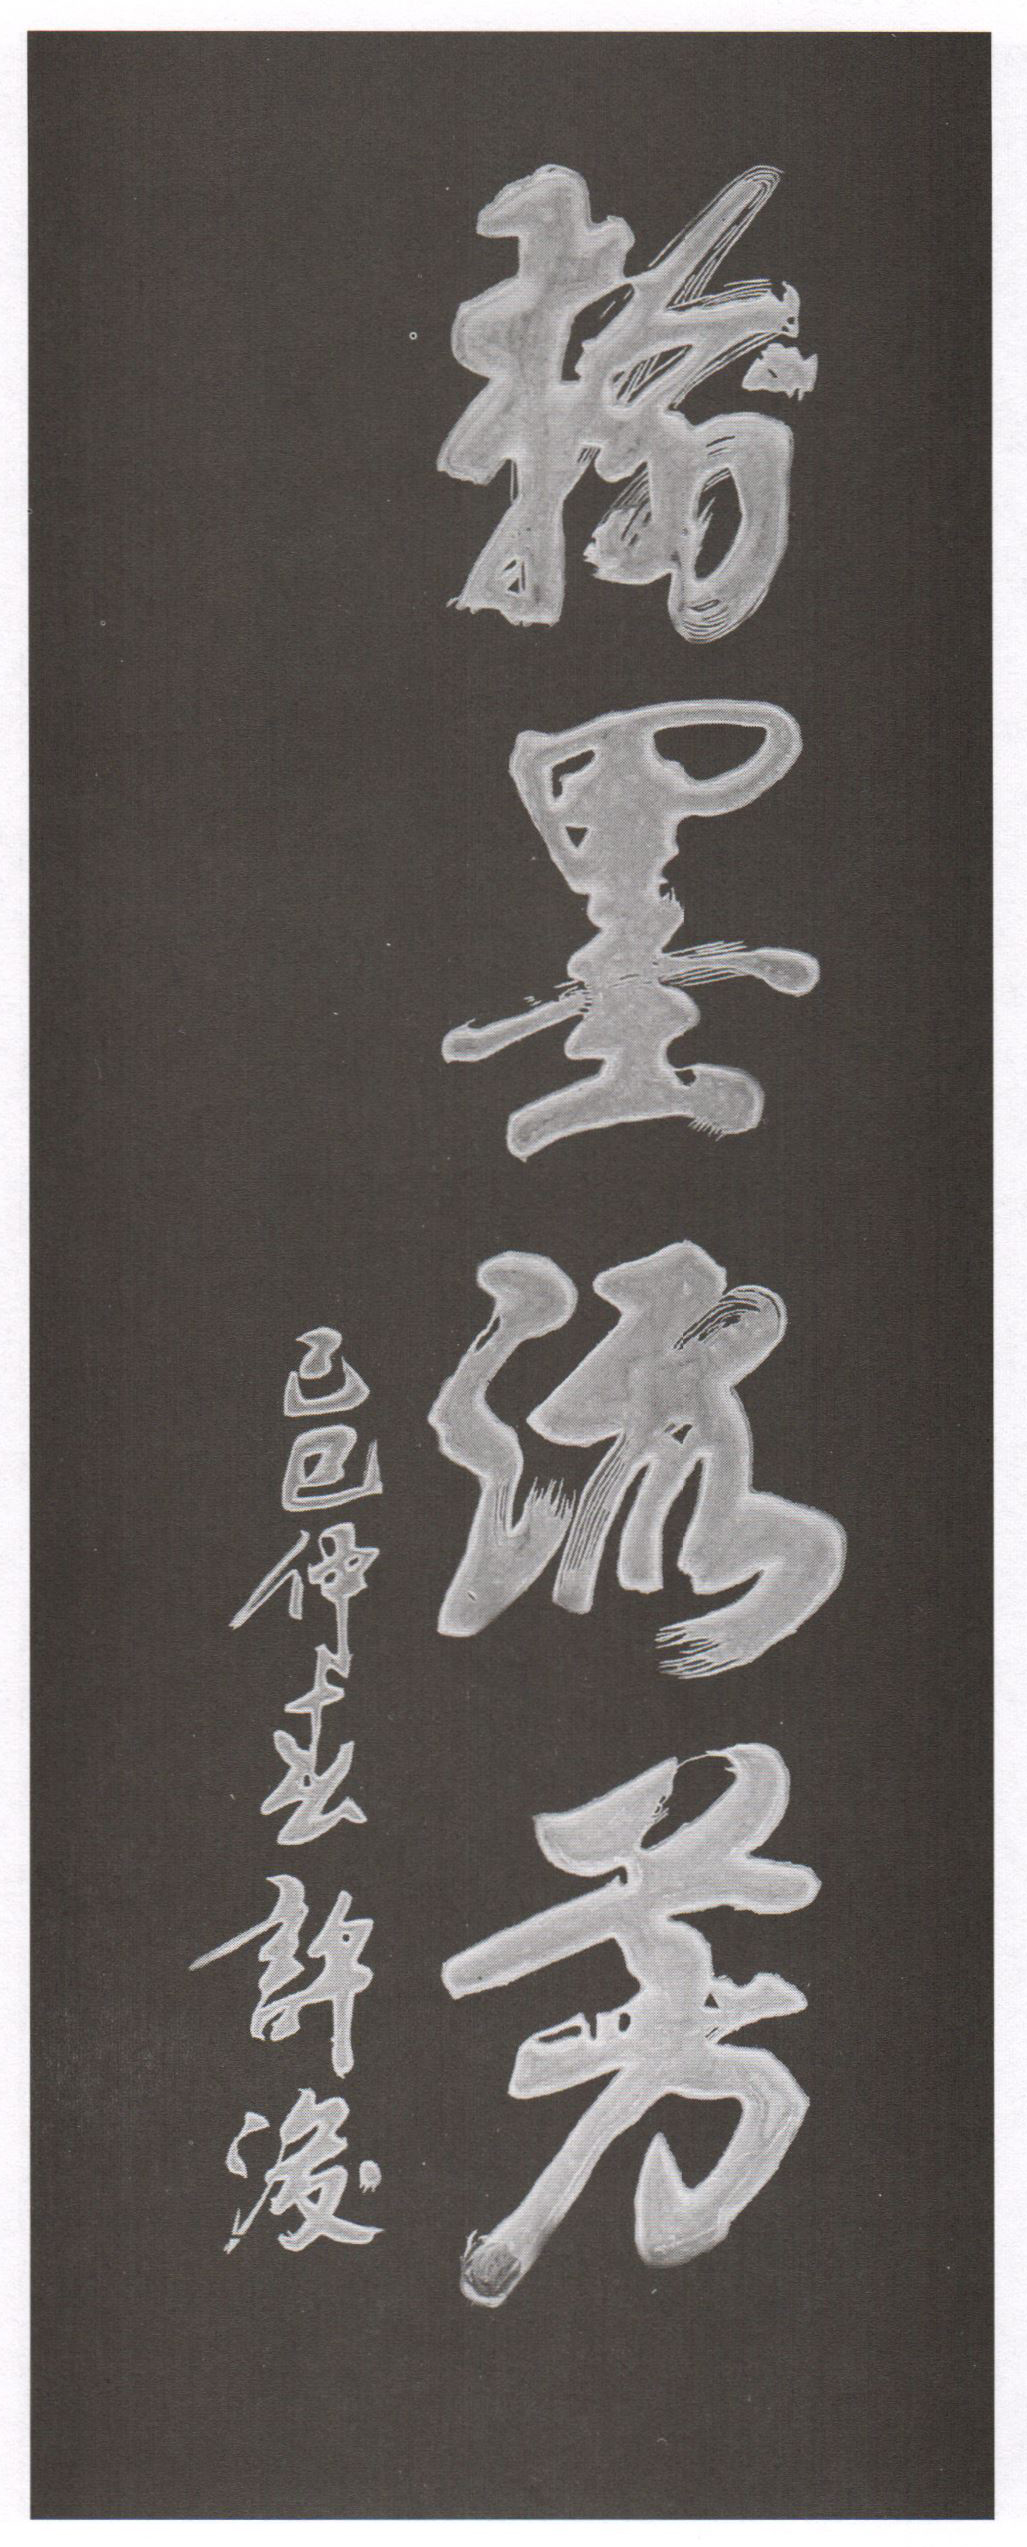 翰墨流芳
己巳仲春 許浚